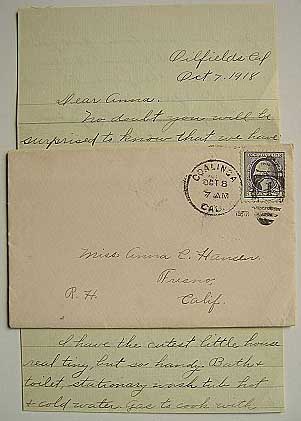 Oilfields Cal
Oct 7, 1918
Dear Anna.
No doubt you will be
surprised to know that we have
COALINGA
OCT 8
7 AM
CAL.
Miss Anna C. Hansen
Fresno,
R. H. Calif.
I have the cutest little house
real tiny, but so handy. Bath +
toilet, stationary wash tub hot
+ cold water. Gas to cook with,